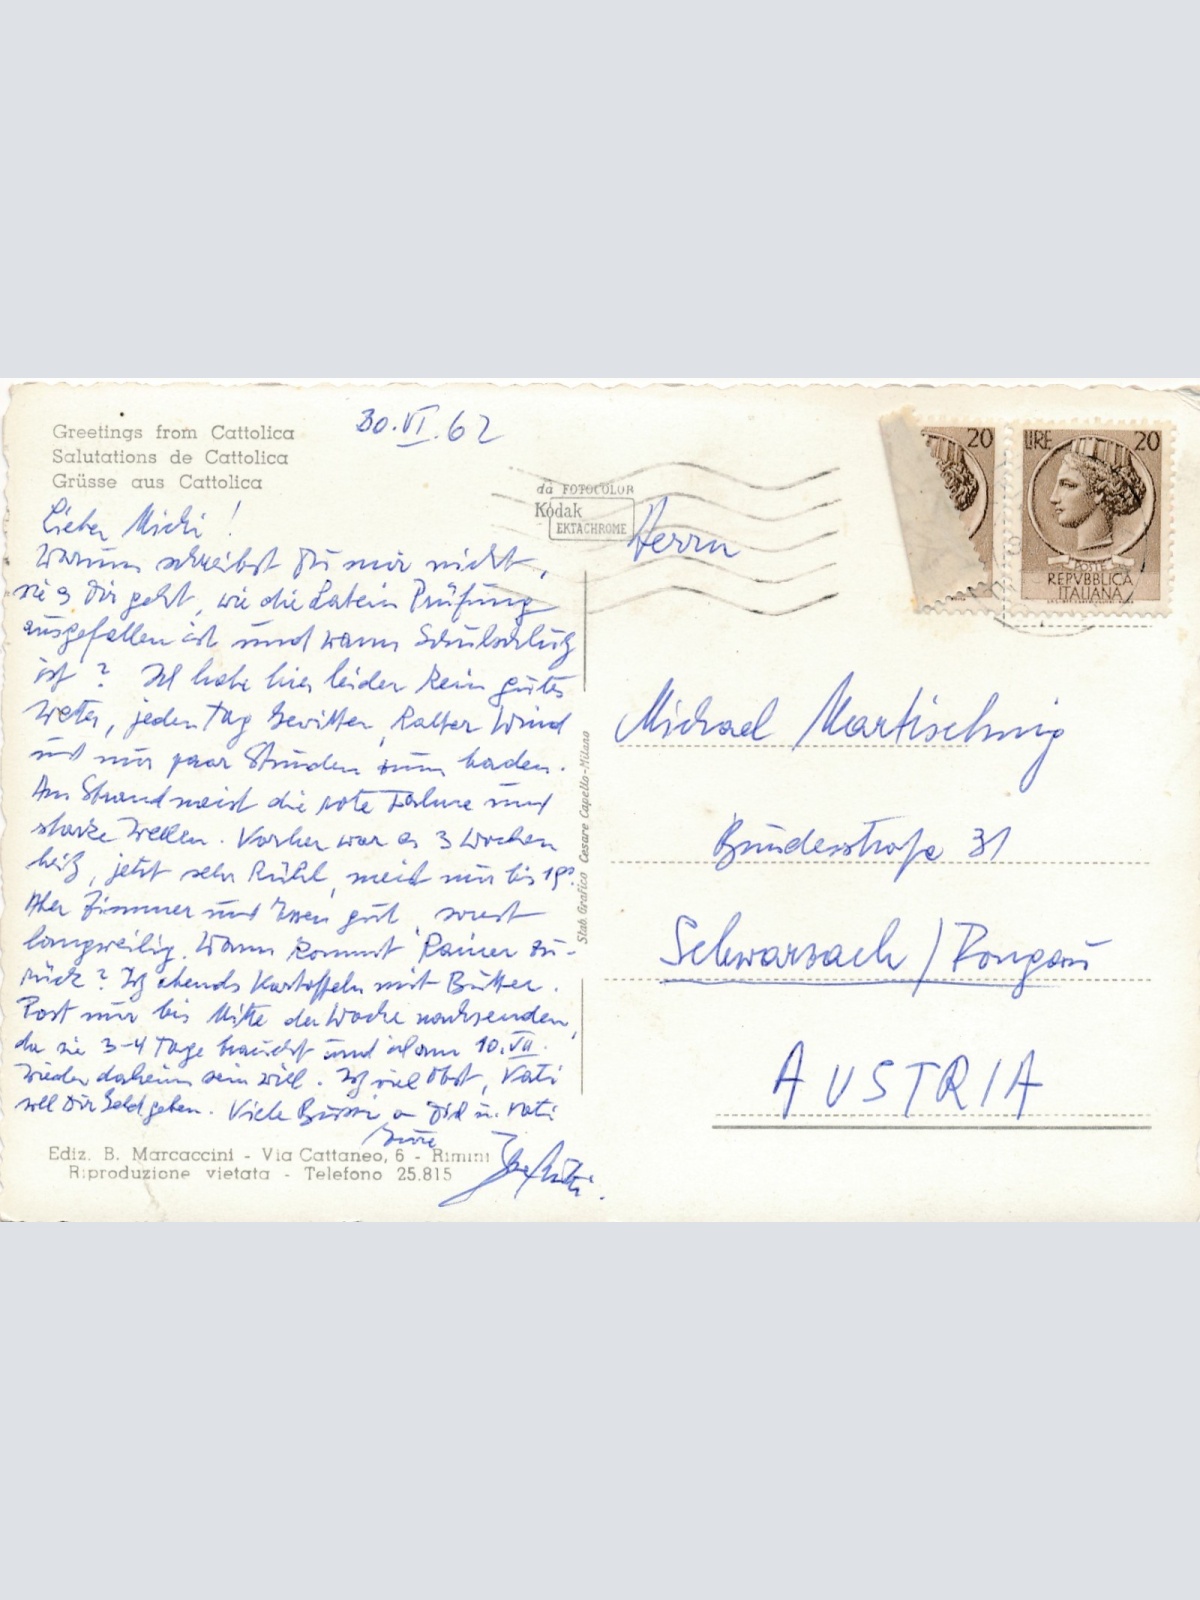 Greetings from Cattolica
Salutations de Cattolica
Grüsse aus Cattolica
30.VI.62
da FOTOCOLOR
Kodak
EKTACHROME
LIRE 20
20
POSTE
REPVBBLICA
ITALIANA
Lieber Michi!
Warum schreibst Du mir nicht,
wie es Dir geht, wie die Latein Prüfung
ausgefallen ist und wann Schulschluß
ist? Ich habe hier leider kein gutes
Wetter, jeden Tag Gewitter, kalter Wind
und nur paar Stunden zum baden.
Am Strand meist die rote Fahne und
starke Wellen. Vorher war es 3 Wochen
heiß, jetzt sehr kühl, meist nur bis 19°.
Aber Zimmer und Essen gut, sonst
langweilig. Wann kommt Rainer zu-
rück? Iß abends Kartoffeln mit Butter.
Post nur bis Mitte der Woche nachsenden,
da sie 3-4 Tage braucht und ich am 10.VII.
wieder daheim sein will. Iß viel Obst, Vati
soll Dir Geld geben. Viele Bussi an Dich u. Vati
Eure
Herrn
Michael Martischnig
Bundesstraße 31
Schwarzach / Pongau
AUSTRIA
Stab. Grafico Cesare Capello-Milano
Ediz. B. Marcaccini - Via Cattaneo, 6 - Rimini
Riproduzione vietata - Telefono 25.815